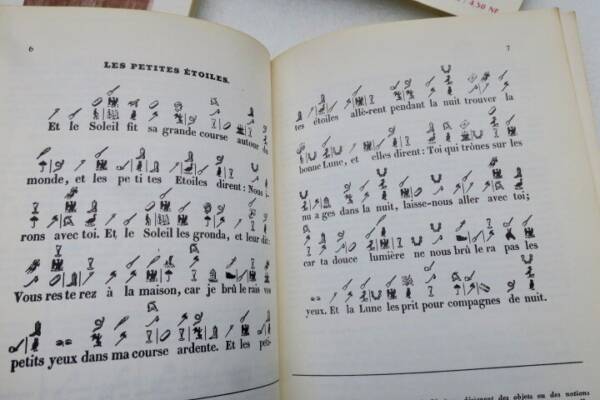 4,50 NF
6
LES PETITES ÉTOILES.
Et le Soleil fit sa grande course autour du
monde, et les pe ti tes Etoiles dirent: Nous i-
rons avec toi. Et le Soleil les gronda, et leur dit:
Vous res te rez à la maison, car je brû le rais vos
petits yeux dans ma course ardente. Et les peti-
7
tes étoiles allè-rent pendant la nuit trouver la
bonne Lune, et elles dirent: Toi qui trônes sur les
nu a ges dans la nuit, laisse-nous aller avec toi;
car ta douce lumière ne nous brû le ra pas les
yeux. Et la Lune les prit pour compagnes de nuit.
des objets ou des notions